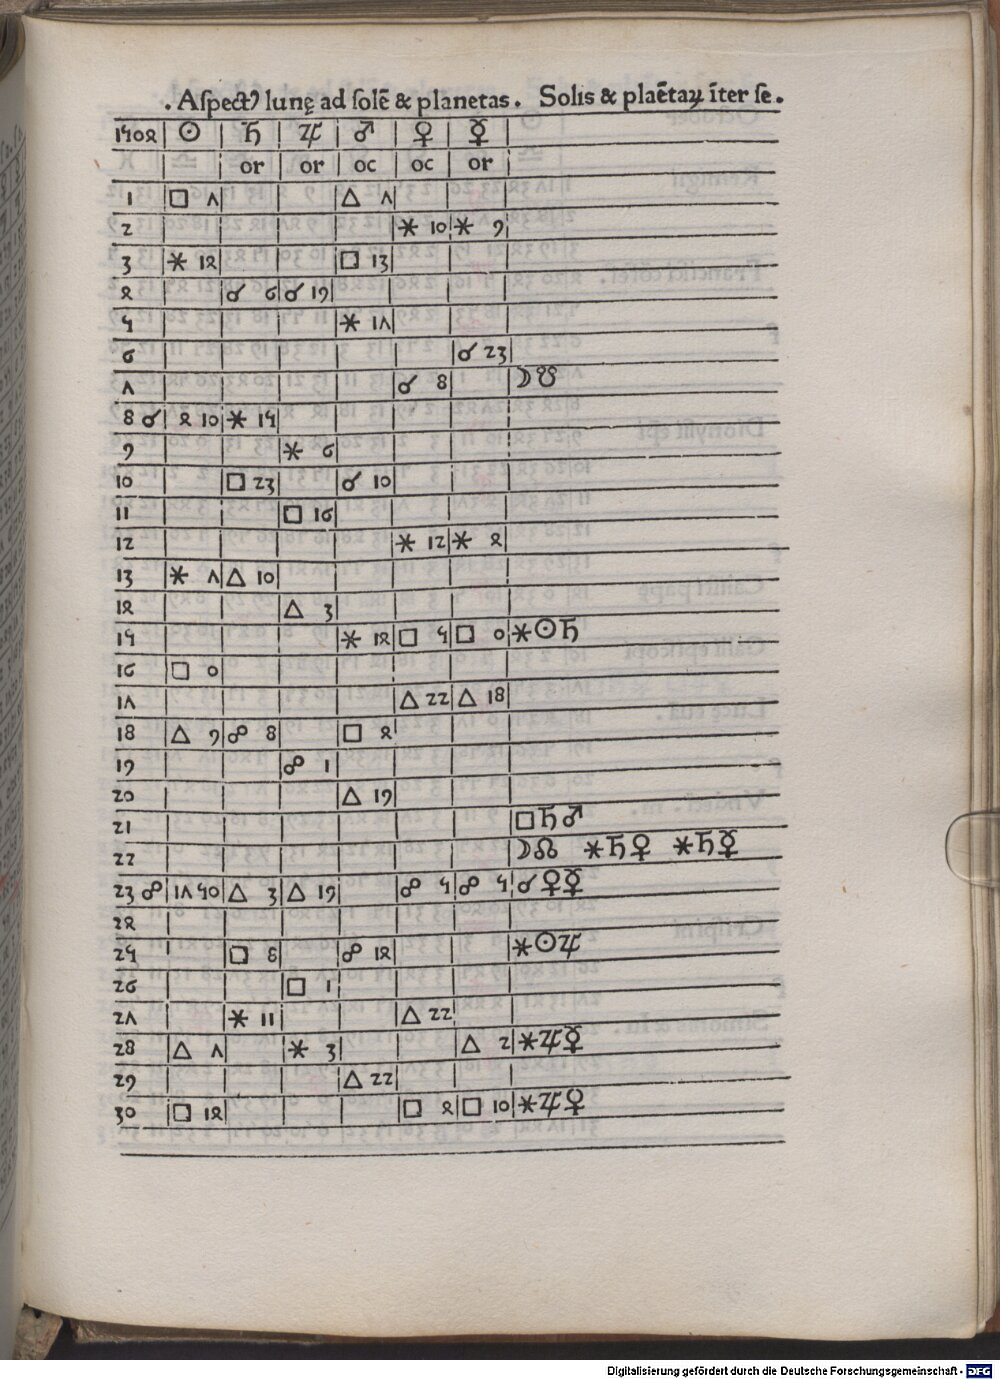 . Aſpectꝰ lunę ad ſolē & planetas . Solis & plaētaꝝ īter ſe .
1504 ☉ ♄ ♃ ♂ ♀ ☿
or or oc oc or
1 □ 7 △ 7
2 ⚹ 10 ⚹ 9
3 ⚹ 14 □ 13
4 ☌ 6 ☌ 19
5 ⚹ 17
6 ☌ 23
7 ☌ 8 ☽☋
8 ☌ 4 10 ⚹ 15
9 ⚹ 6
10 □ 23 ☌ 10
11 □ 16
12 ⚹ 12 ⚹ 4
13 ⚹ 7 △ 10
14 △ 3
15 ⚹ 14 □ 5 □ 0 ⚹☉♄
16 □ 0
17 △ 22 △ 18
18 △ 9 ☍ 8 □ 4
19 ☍ 1
20 △ 19
21 □♄♂
22 ☽☊ ⚹♄♀ ⚹♄☿
23 ☍ 17 50 △ 3 △ 19 ☍ 5 ☍ 5 ☌♀☿
24
25 □ 8 ☍ 14 ⚹☉♃
26 □ 1
27 ⚹ 11 △ 22
28 △ 7 ⚹ 3 △ 2 ⚹♃☿
29 △ 22
30 □ 14 □ 4 □ 10 ⚹♃♀
Digitalisierung gefördert durch die Deutsche Forschungsgemeinschaft - DFG